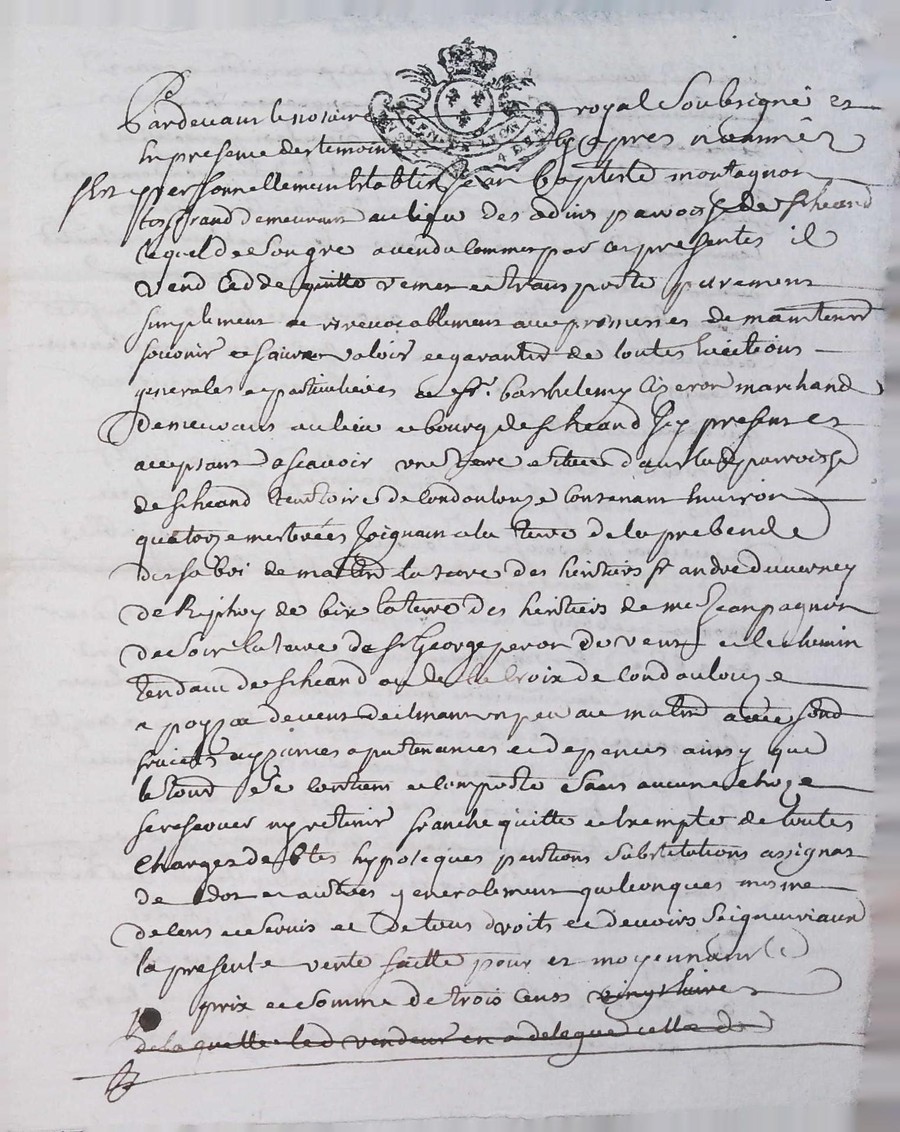 Pardevant le notaire royal Soubsigné et
En presence des temoins cy apres nommés
personnellement Estably Jean Baptiste montagnon
demeurant au lieu des parroisse de
lequel de Son gre a vendu comme par ces presentes il
vend Cedde quitte remet et transporte purement
simplement et irrevocablement avec promesses de maintenir
et faire valoir et garantir de toutes Evictions
generales et particulieres a Sr. barthelemy marchand
Demeurant au lieu et bourg de present et
acceptant a scavoir une terre situee dans lad parroisse
de territoire de Condoulouze Contenant Environ
quatorze metérées Joignant a la terre de la prebende
de matin la terre des heritiers Sr andré duverney
de de bize la terre des heritiers de me Jean pagnon
de Soir la terre de Sr George peron de vent et le chemin
tendant de a la Croix de Condoulouze
un peu au matin avec Ses fond
fruicts aizances apartenances et dependces ainsy que
le tout Se Contient et Comporte Sans aucune choze
Se reserver ny retenir franche quitte et Exempte de toutes
Charges debtes hypoteques pentions Substitutions assignat
de dot et autres generalement quelconques mesme
de Cens et Servis et de tous droits et devoirs Seigneuriaux
la presente vente faitte pour et moyennant le
prix et Somme de trois Cens
de laquelle led vendeur en a delegué celle de